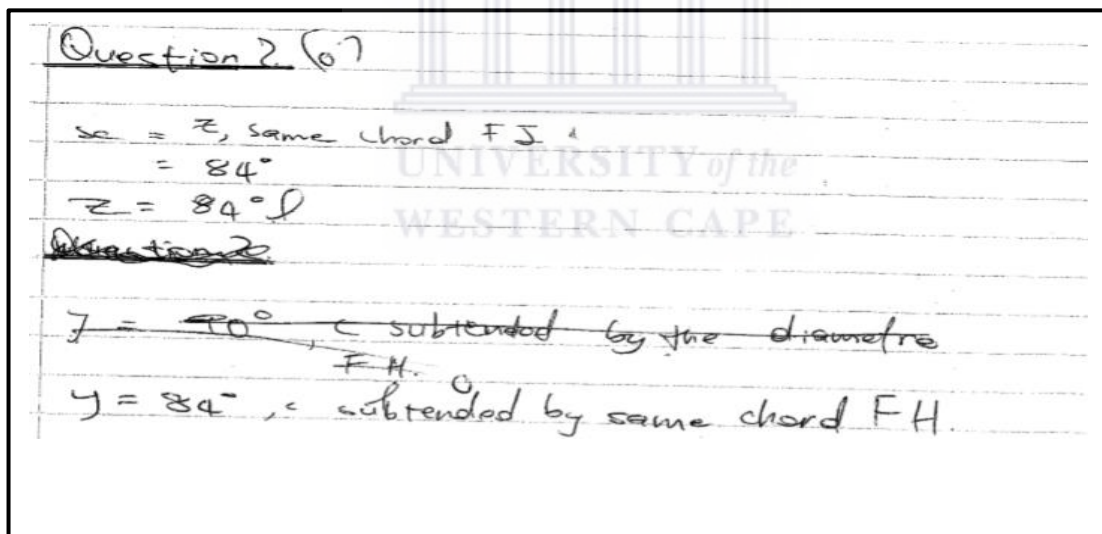 Question 2 (0)
x = z, same chord FJ
= 84°
UNIVERSITY of the
z = 84°
WESTERN CAPE
Question 2
y = 90°, < subtended by the diametre
FH.
y = 84°, < subtended by same chord FH.